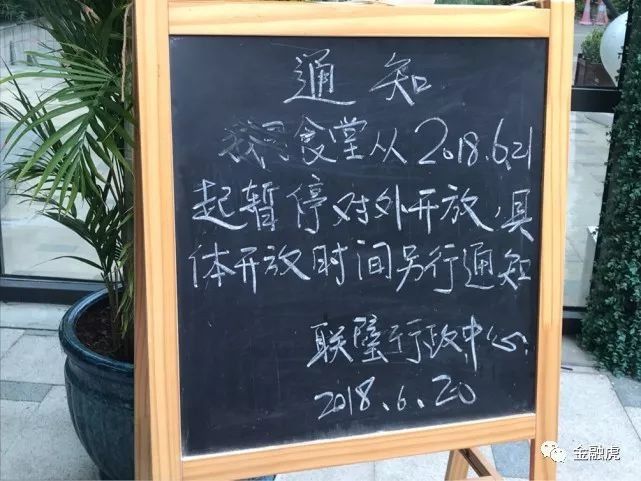 通知
我司食堂从2018.6.21
起暂停对外开放，具
体开放时间另行通知
联璧行政中心
2018.6.20
金融虎